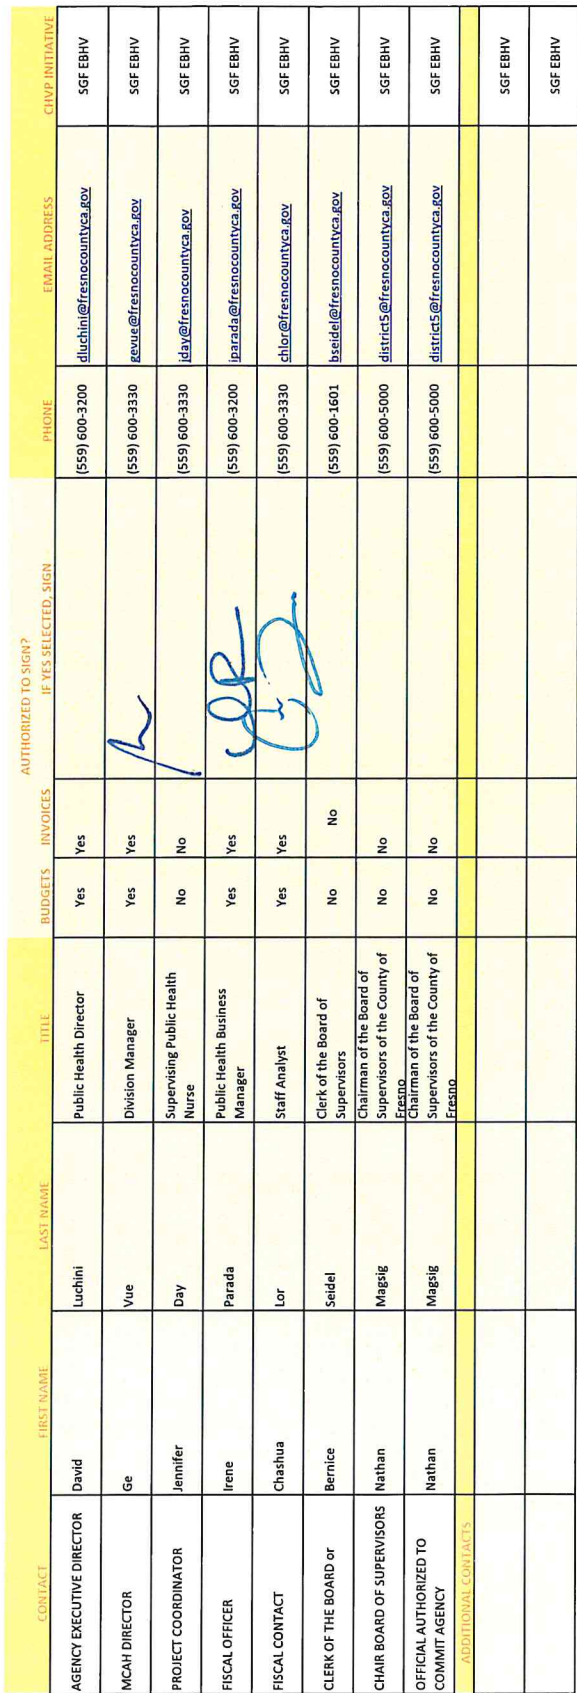 AUTHORIZED TO SIGN?
CONTACT FIRST NAME LAST NAME TITLE BUDGETS INVOICES IF YES SELECTED, SIGN PHONE EMAIL ADDRESS CHVP INITIATIVE
AGENCY EXECUTIVE DIRECTOR David Luchini Public Health Director Yes Yes (559) 600-3200 dluchini@fresnocountyca.gov SGF EBHV
MCAH DIRECTOR Ge Vue Division Manager Yes Yes (559) 600-3330 gevue@fresnocountyca.gov SGF EBHV
PROJECT COORDINATOR Jennifer Day Supervising Public Health
Nurse No No (559) 600-3330 jday@fresnocountyca.gov SGF EBHV
FISCAL OFFICER Irene Parada Public Health Business
Manager Yes Yes (559) 600-3200 iparada@fresnocountyca.gov SGF EBHV
FISCAL CONTACT Chashua Lor Staff Analyst Yes Yes (559) 600-3330 chlor@fresnocountyca.gov SGF EBHV
CLERK OF THE BOARD or Bernice Seidel Clerk of the Board of
Supervisors No No (559) 600-1601 bseidel@fresnocountyca.gov SGF EBHV
CHAIR BOARD OF SUPERVISORS Nathan Magsig Chairman of the Board of
Supervisors of the County of
Fresno No No (559) 600-5000 district5@fresnocountyca.gov SGF EBHV
OFFICIAL AUTHORIZED TO
COMMIT AGENCY Nathan Magsig Chairman of the Board of
Supervisors of the County of
Fresno No No (559) 600-5000 district5@fresnocountyca.gov SGF EBHV
ADDITIONAL CONTACTS
SGF EBHV
SGF EBHV